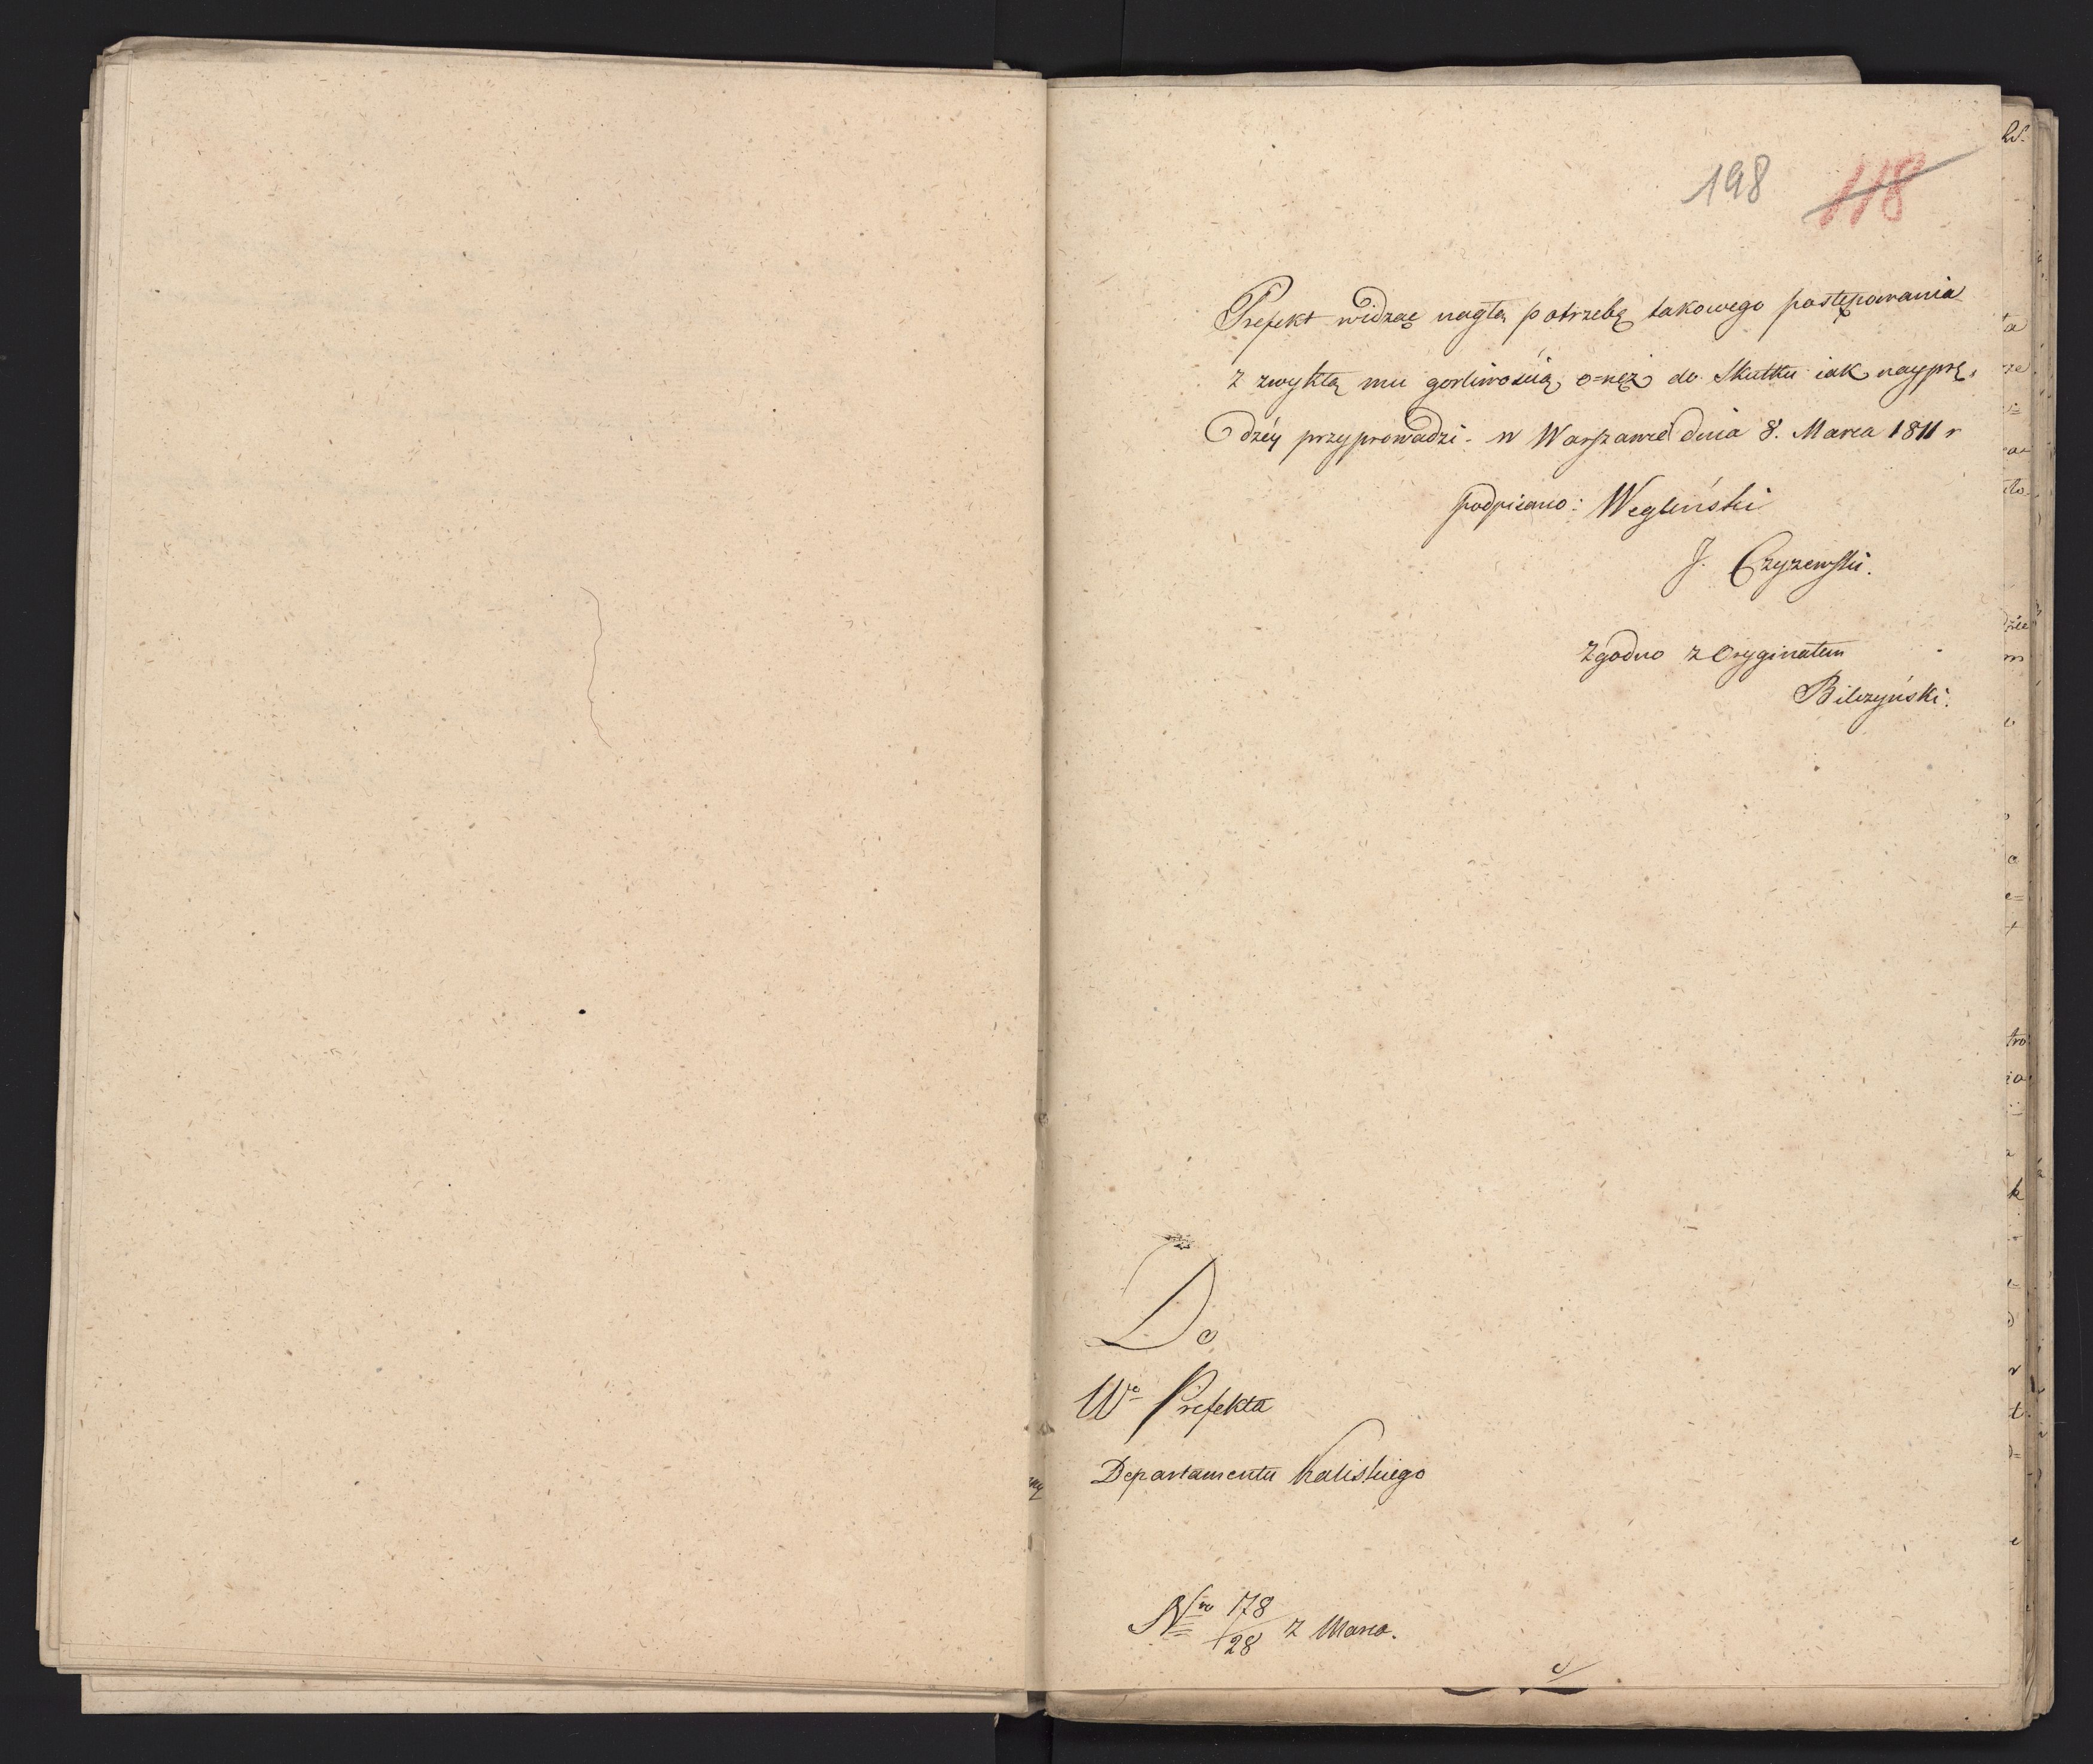 198 118
Prefekt widząc nagłą potrzebę takowego postępowania
z zwykłą mu gorliwością do Skutku iak nayprę-
dzéy przyprowadzi. w Warszawie dnia 8. Marca 1811 r
podpisano: Węgleński
J. Czyzewski.
Zgodno z Oryginałem
Bilczyński.
Do
Wo Prefekta
Departamentu Kaliskiego
Nro 178/28 z Marca.